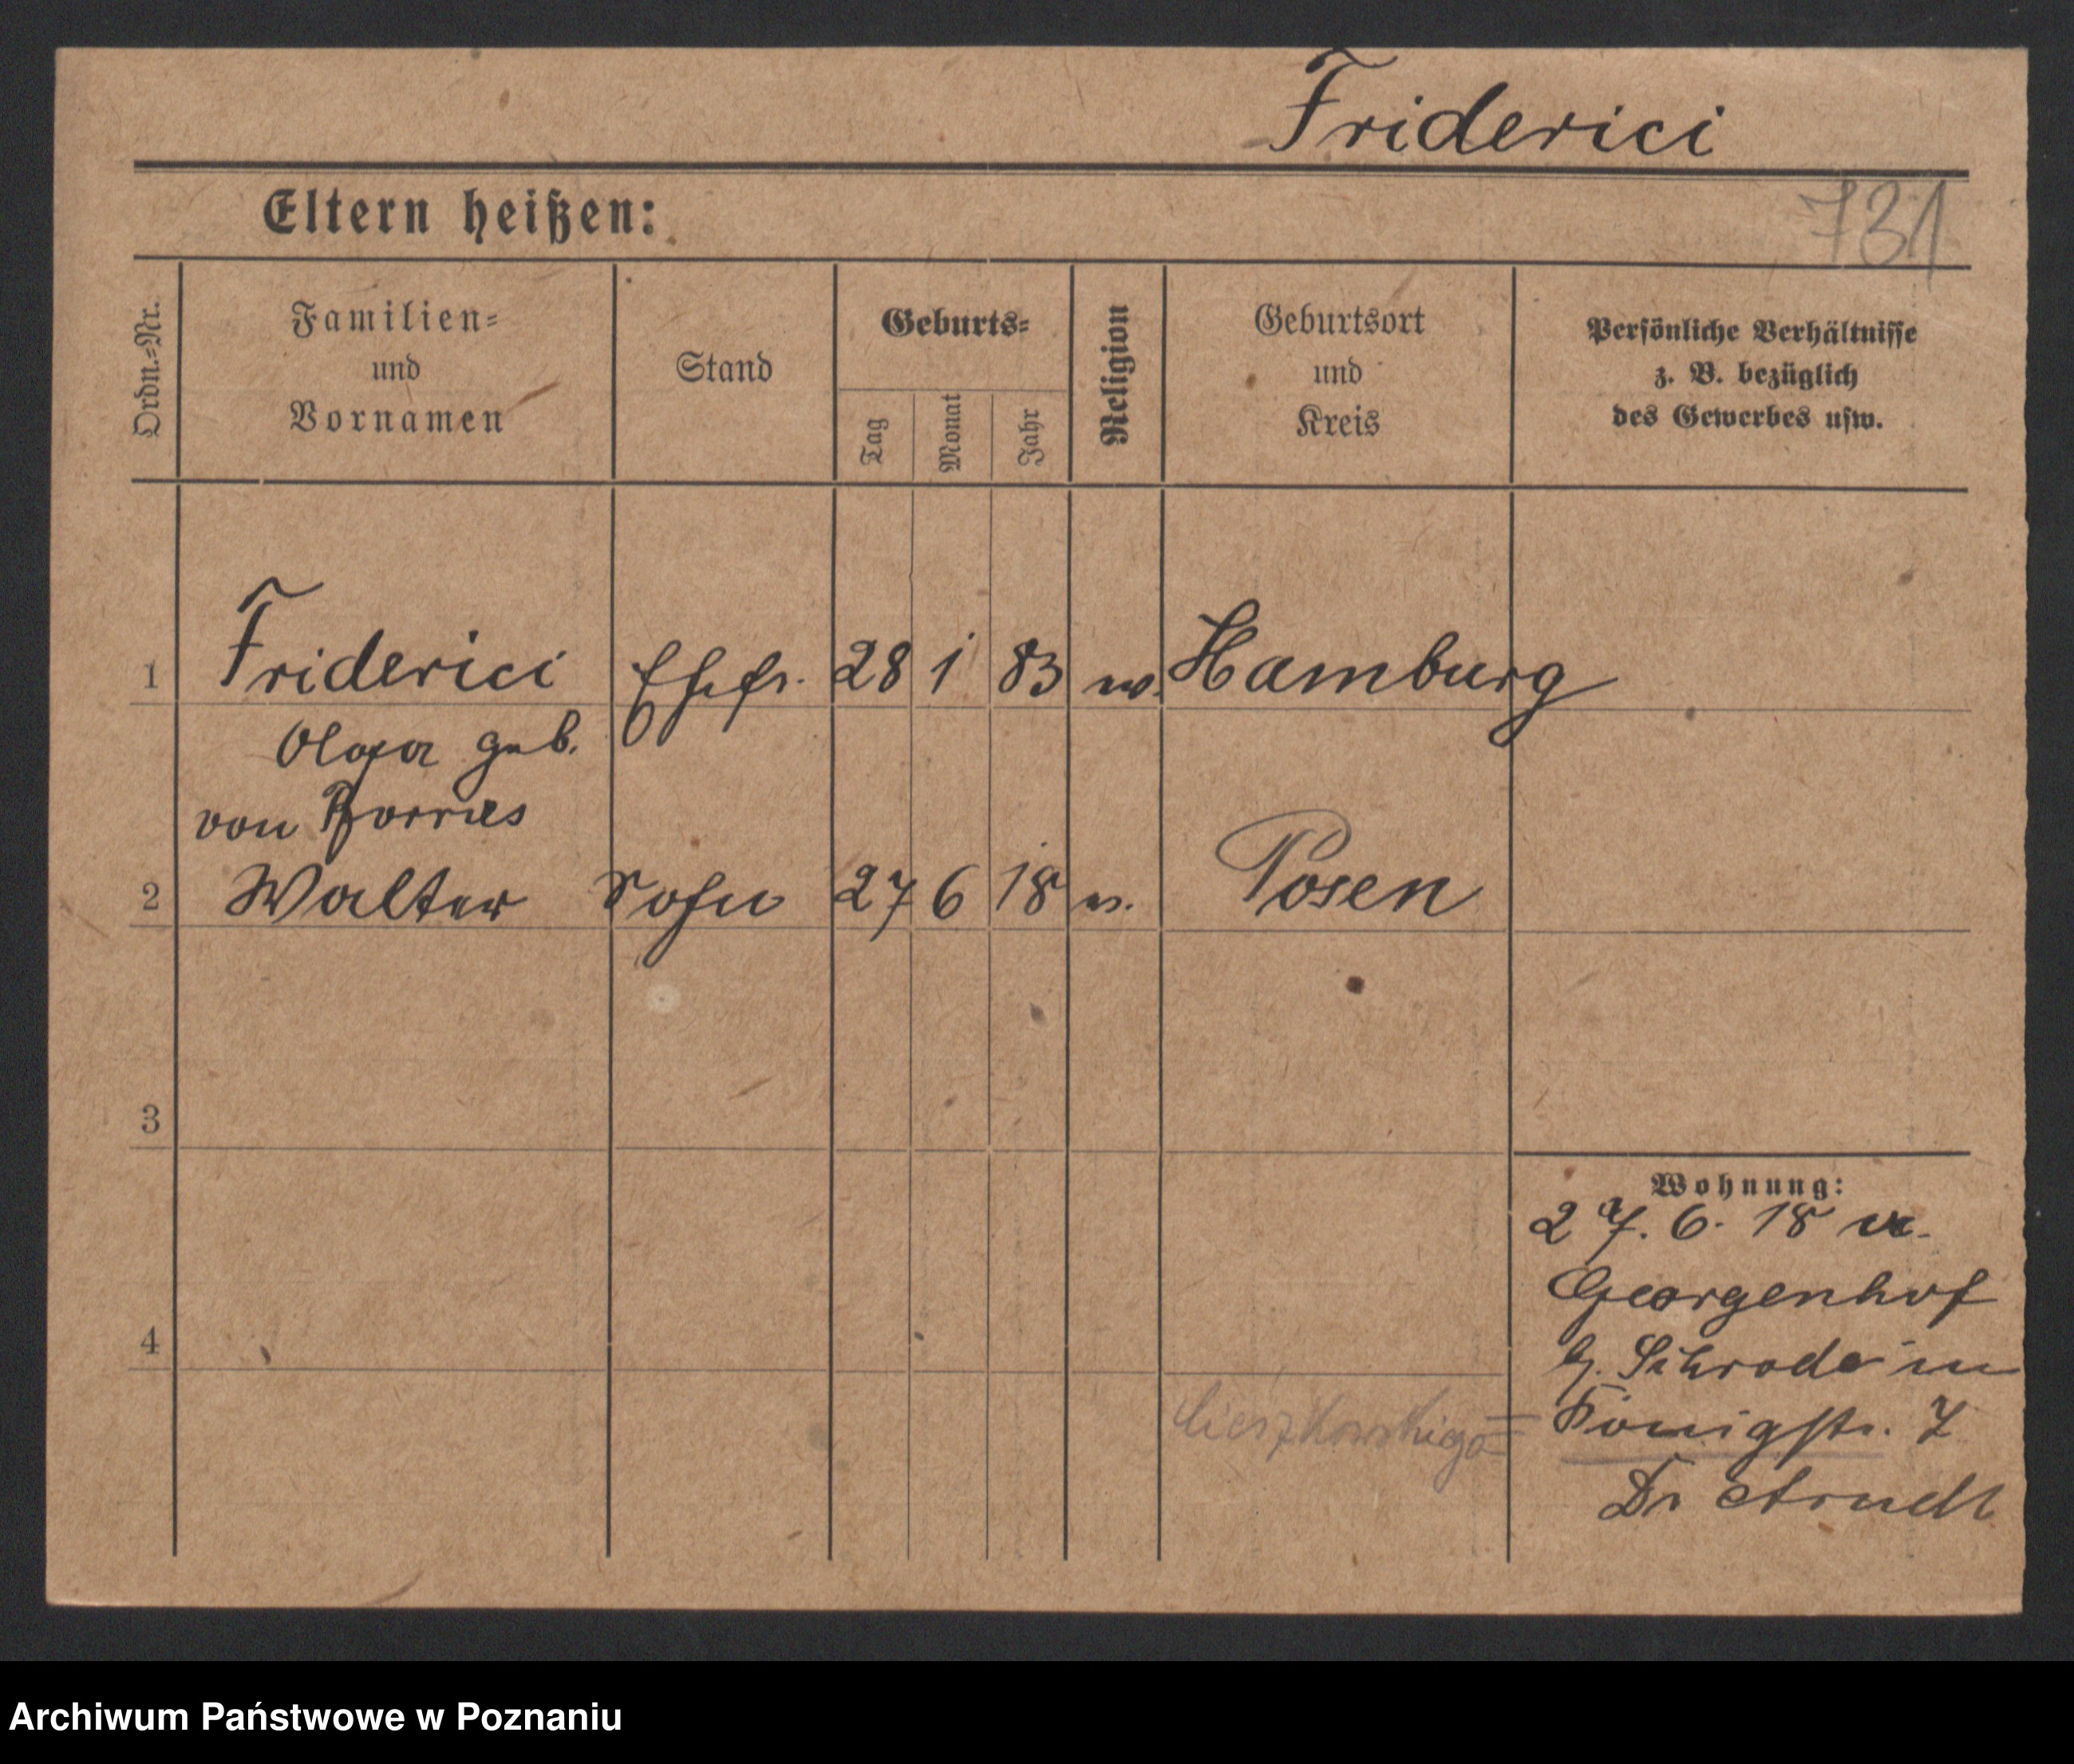 Friderici
Eltern heißen:
731
Ordn.=Nr.
Familien=
und
Vornamen
Stand
Geburts=
Tag
Monat
Jahr
Religion
Geburtsort
und
Kreis
Persönliche Verhältnisse
z. B. bezüglich
des Gewerbes usw.
1 Friderici Ehefr. 28 1 83 w. Hamburg
Olga geb.
von Borries
2 Walter Sohn 27 6 18 w. Posen
3
Wohnung:
27. 6. 18 v.
Georgenhof
b. Schroda in
4
Cieszkowskiego Königstr. 7
Dr Arndt
Archiwum Państwowe w Poznaniu